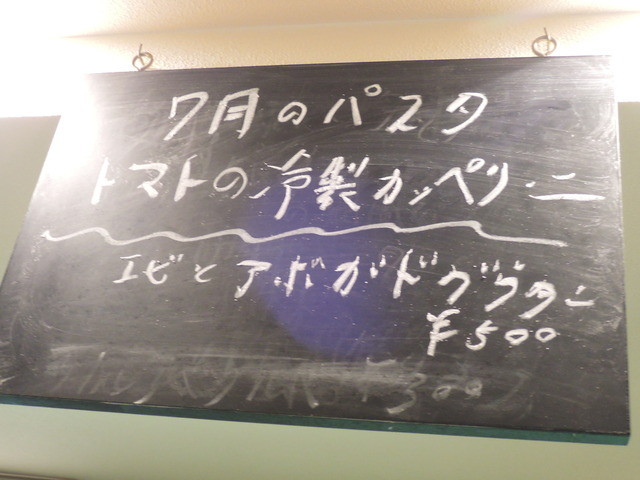 7月のパスタ
トマトの冷製カッペリーニ
エビとアボガドグラタン
¥500